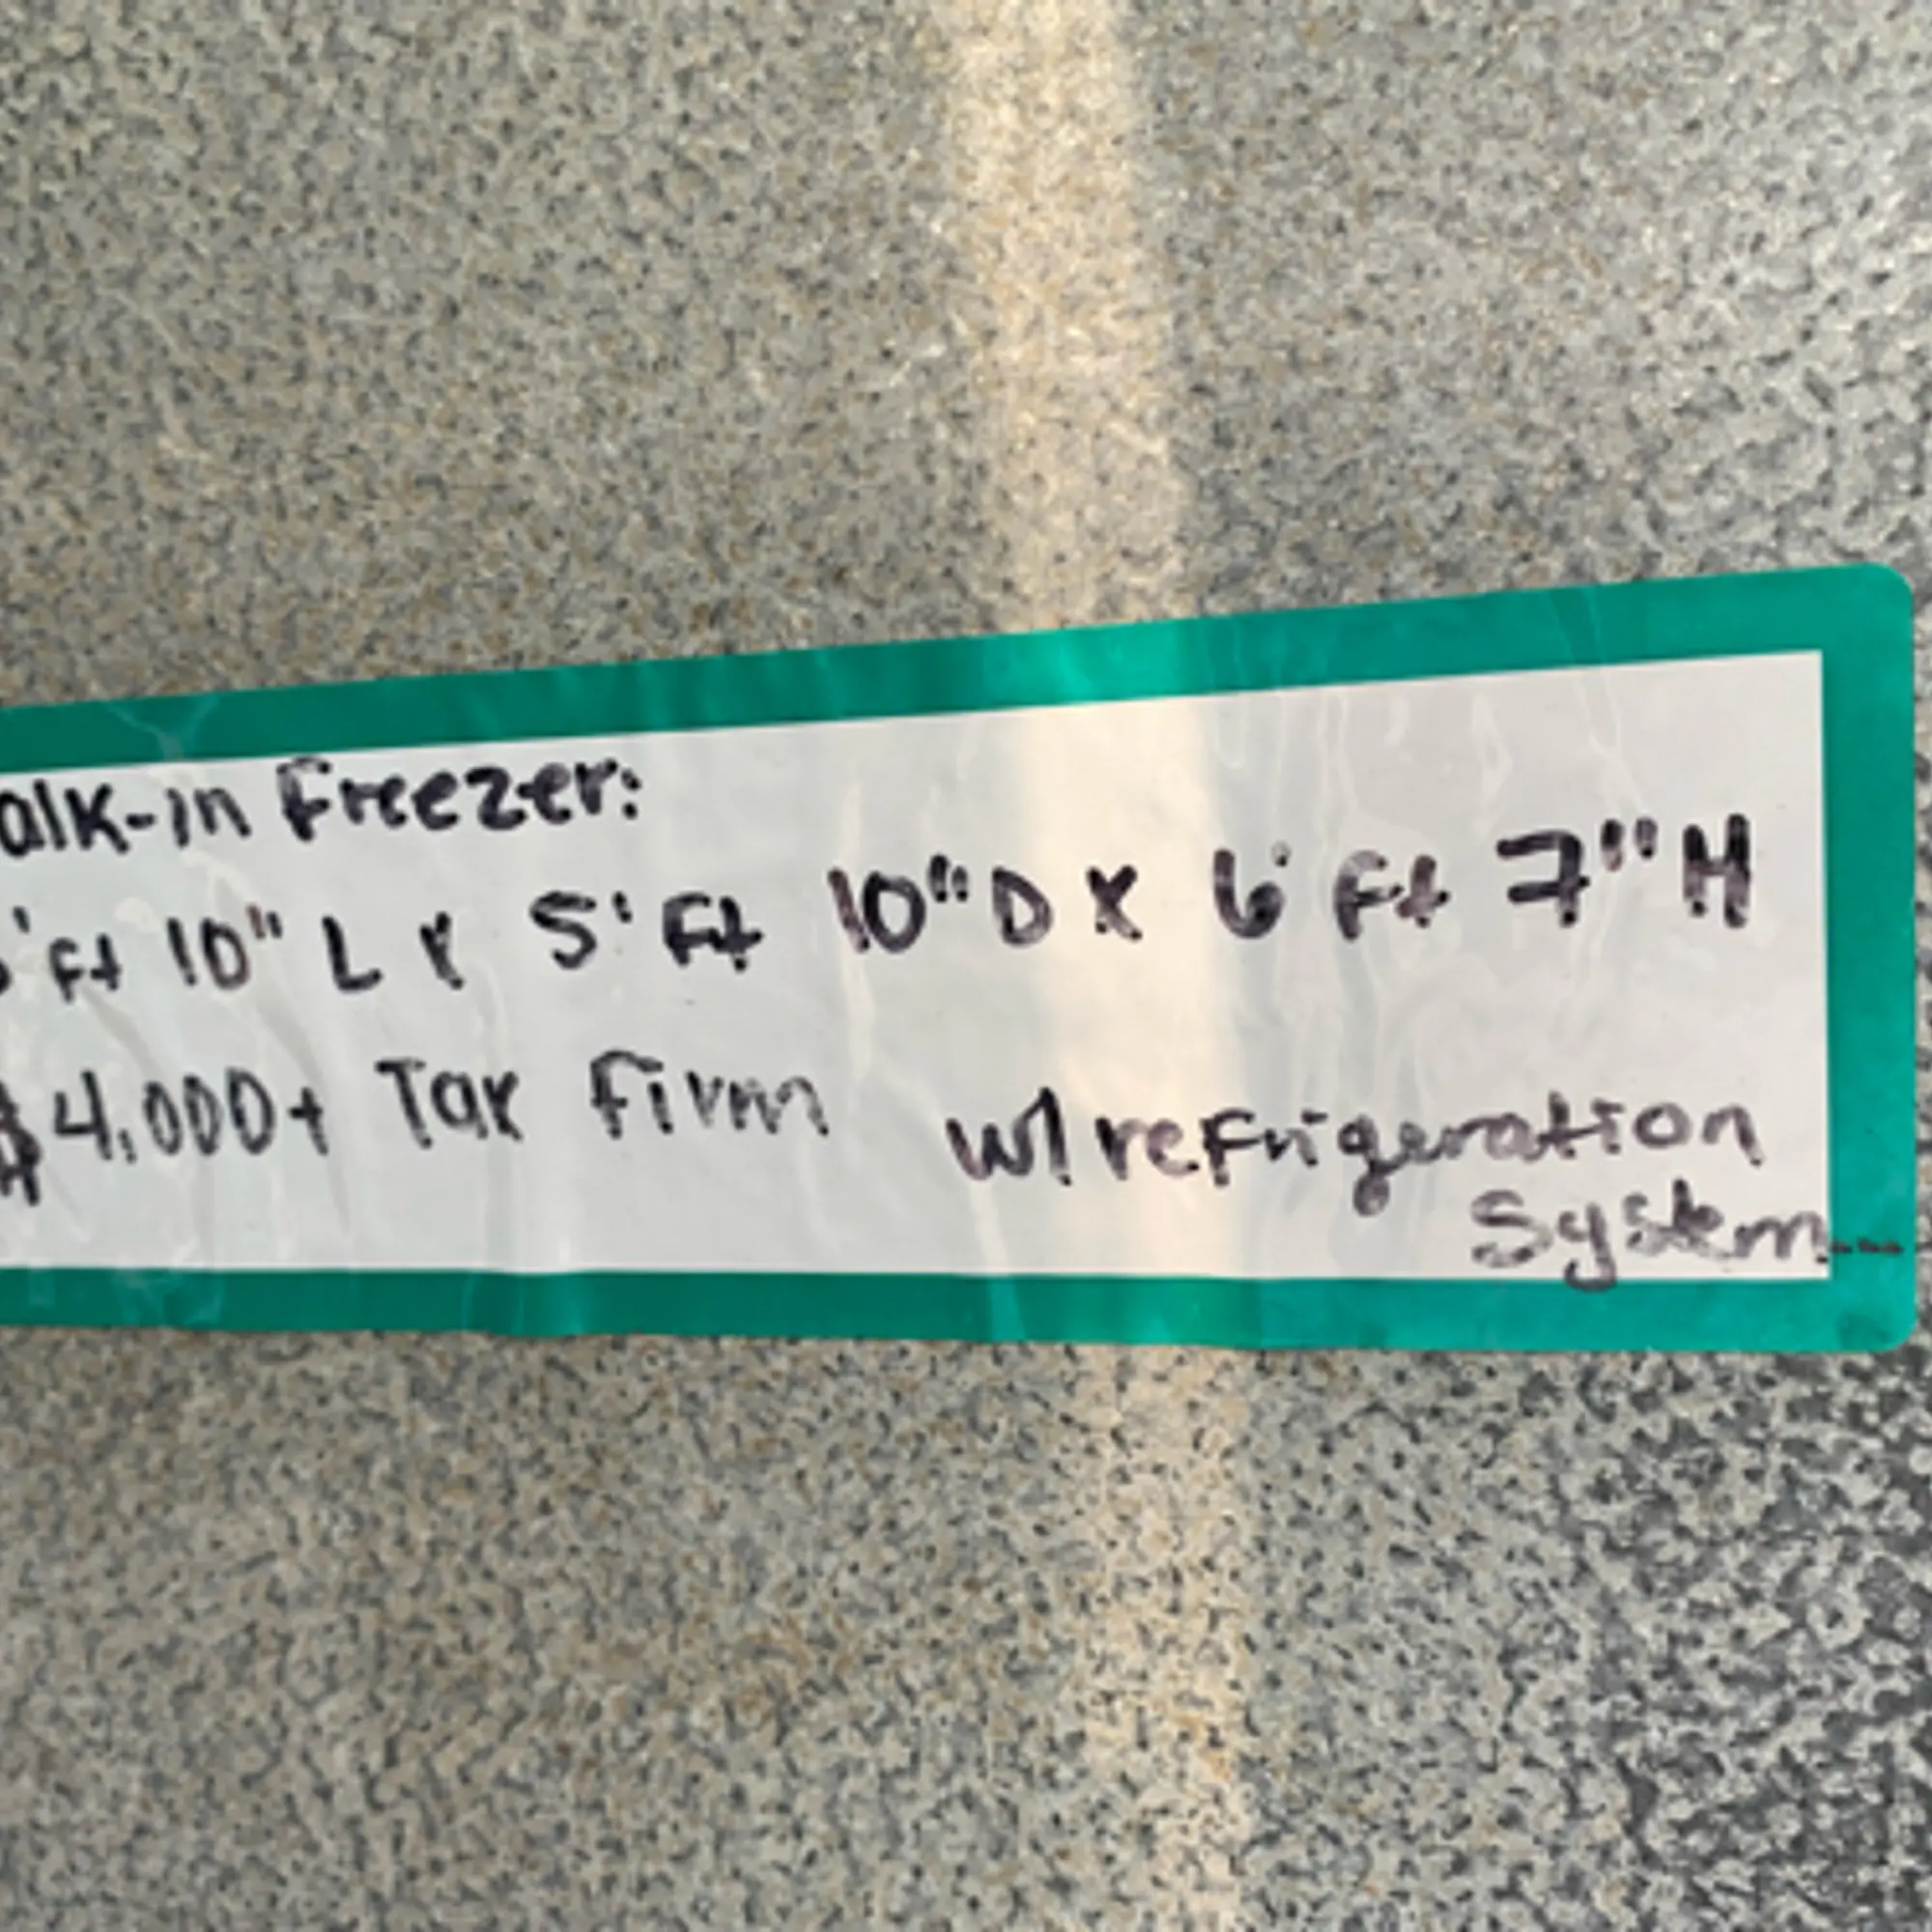 alk-in Freezer:
' Ft 10" L x 5' Ft 10" D x 6' Ft 7" H
$4,000+ Tax firm w/ refrigeration
System